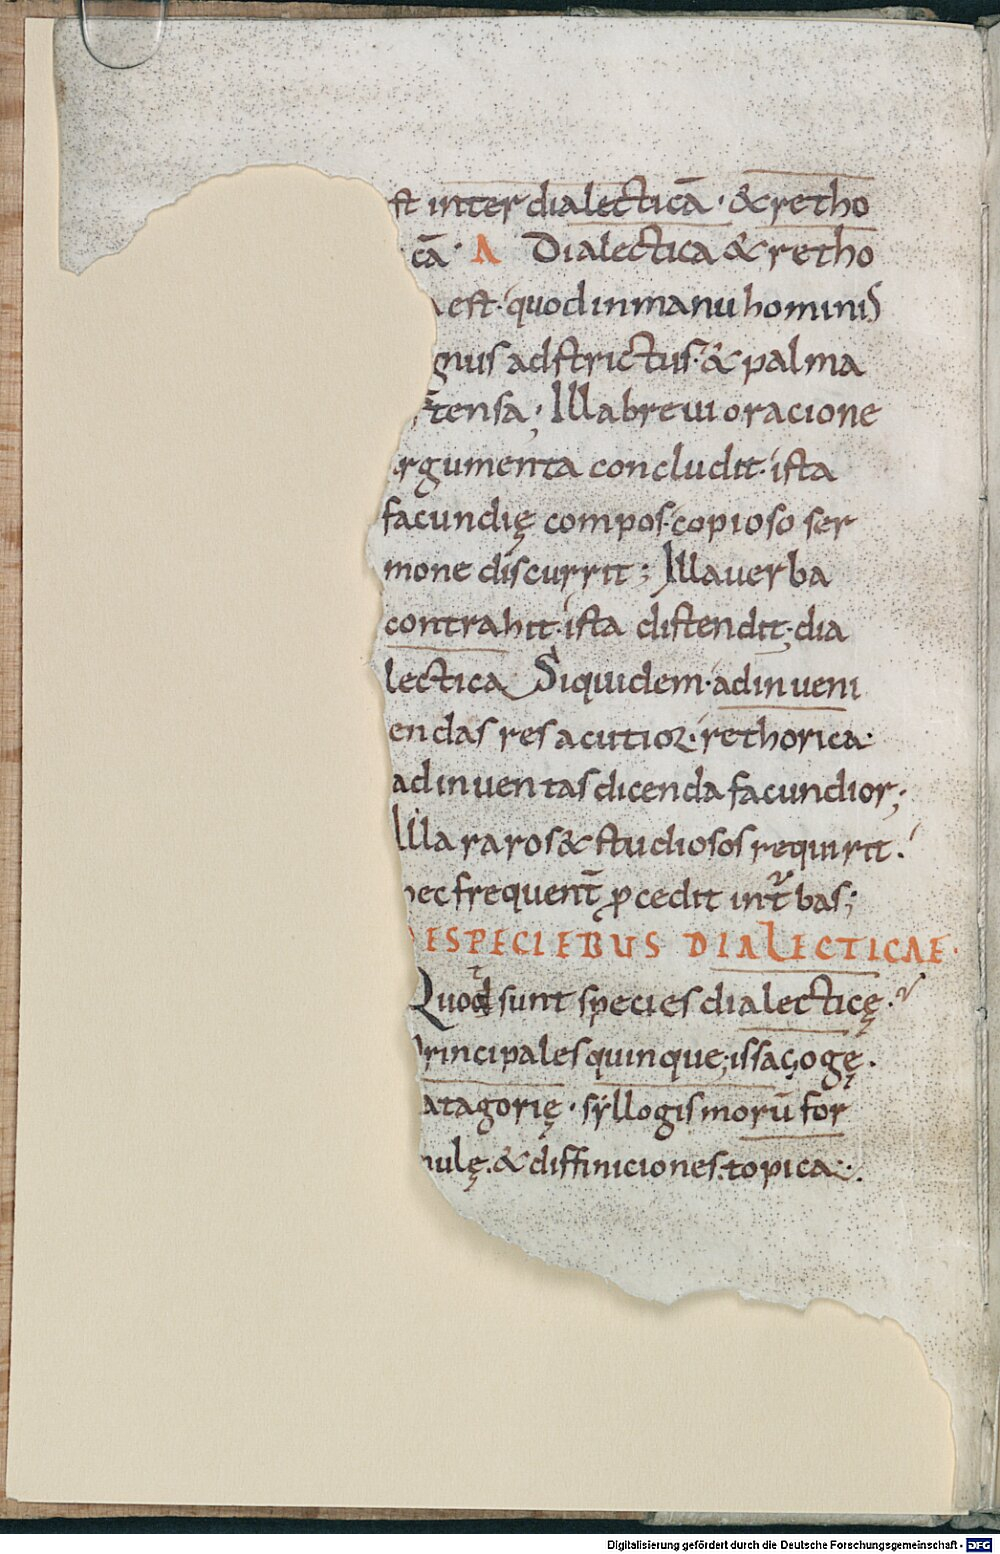 ſt inter dialecticā · & retho
cā · A Dialectica & retho
eſt · quod in manu hominis
gnus adſtrictus · & palma
tensa ; Illa breui oracione
rgumenta concludit · iſta
facundię compos · copioso ser
mone discurrit ; Illa uerba
contrahit · iſta diſtendit ; dia
lectica Siquidem · ad inueni
endas res acutior · rethorica
ad inuentas dicenda facundior ;
Illa raros & ſtudiosos requirit .
hec frequent̄ ꝓcedit in t̄bas ;
ESPECIEBUS DIALECTICAE ·
Quod sunt species dialecticę ·
Principales quinque ; issagogę .
atagorię · sẏllogismorū for
mulę . & diffiniciones . topica .
Digitalisierung gefördert durch die Deutsche Forschungsgemeinschaft - DFG